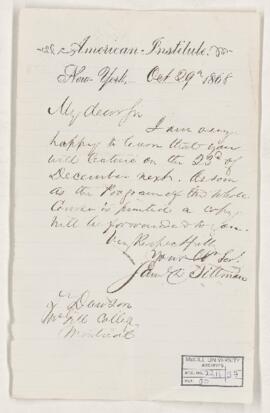 American Institute.
New York, Oct 29th 1868
My dear Sir
I am very
happy to learn that you
will lecture on the 23d of
December next. As soon
as the Program of the whole
Course is printed a copy
will be forwarded to you.
Very Respectfully
Your Ob Ser
Saml D Tillman
Dawson
McGill College
Montreal
McGILL UNIVERSITY
ARCHIVES
ACC. NO. 2211/
REF.